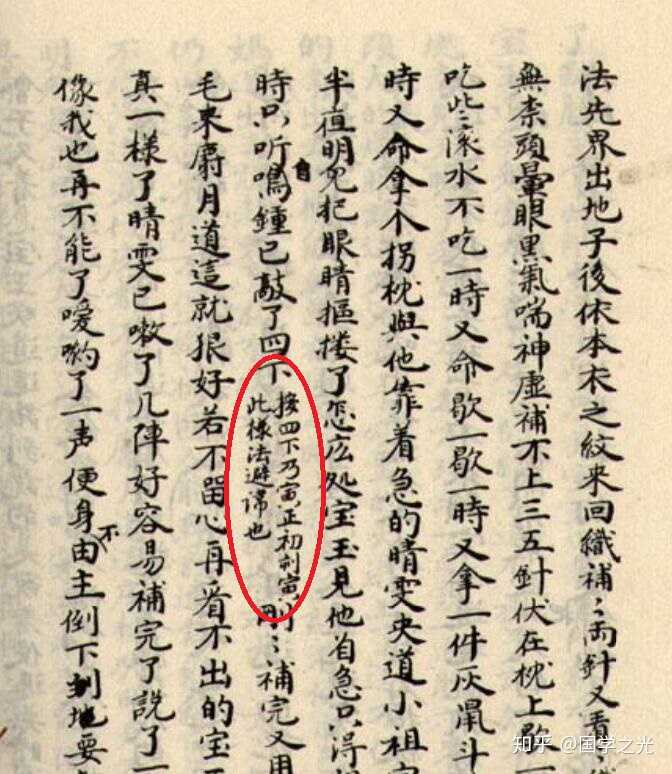 法先界出地子後依本衣之紋来回織補〻兩針又看
無柰頭暈眼黑氣喘神虛補不上三五針伏在枕上歇一
吃些〻滚水不吃一時又命歇一歇一時又拿一件灰鼠斗
時又命拿个拐枕與他靠着急的晴雯央道小祖
半夜明兒把眼睛摳摟了怎庅处宝玉見他着急只得
時只听自鳴鐘已敲了四下
按四下乃寅正初刻寅
此樣法避諱也
剛〻補完又用
毛来麝月道這就狠好若不留心再看不出的宝
真一様了晴雯已嗽了几陣好容易補完了說了一
像我也再不能了噯喲了一声便身不由主倒下
知乎 @国学之光